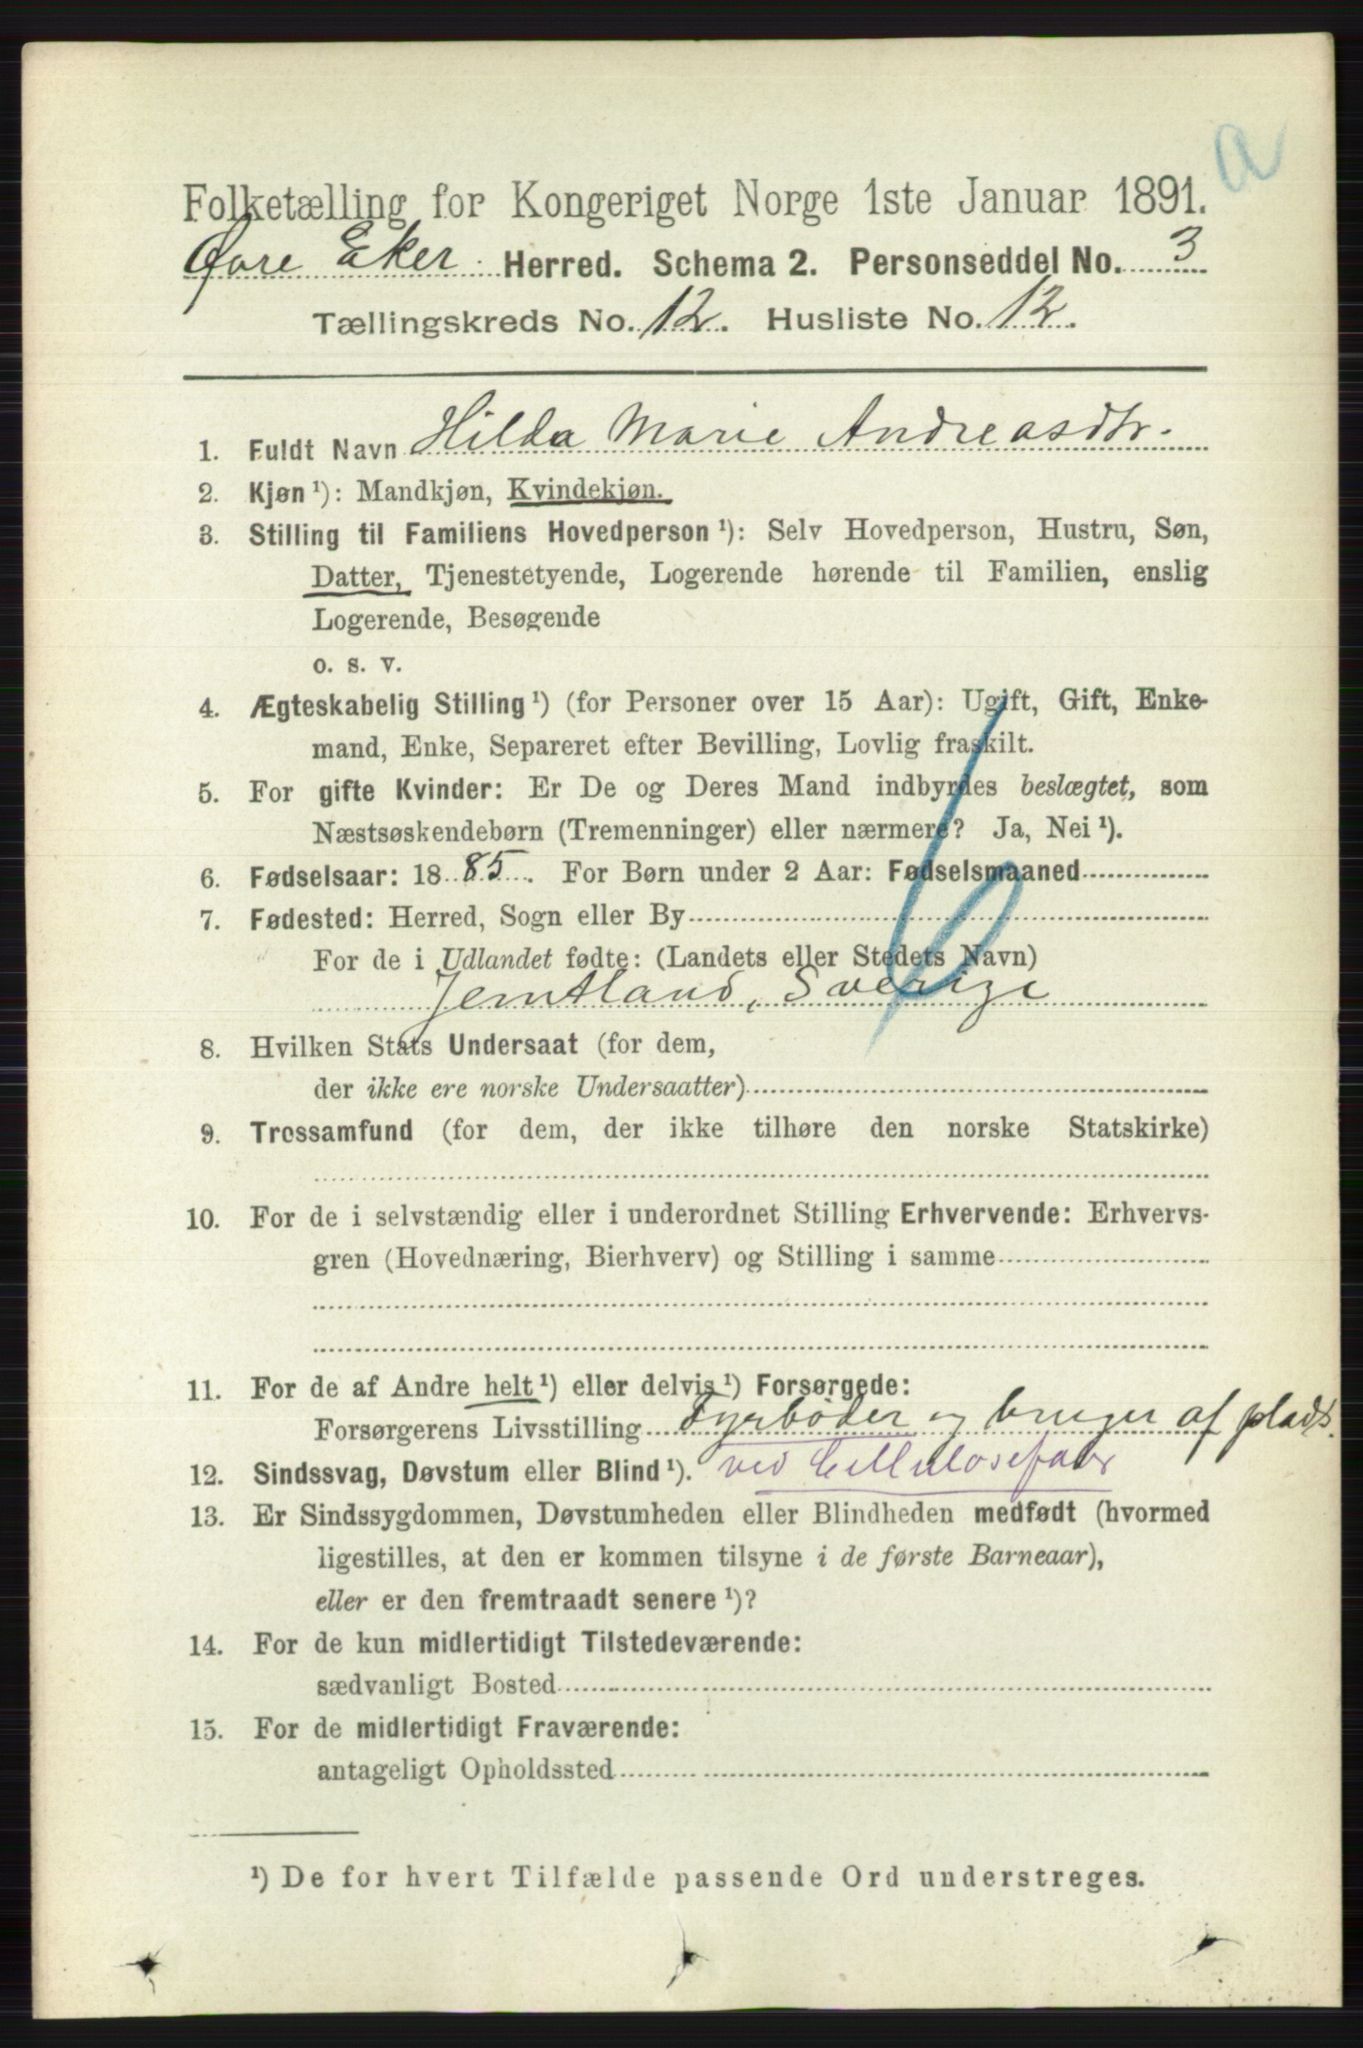 a
Folketælling for Kongeriget Norge 1ste Januar 1891.
Øvre Eker Herred. Schema 2. Personseddel No. 3
Tællingskreds No. 12. Husliste No. 12.
1. Fuldt Navn Hilda Marie Andreasdtr.
2. Kjøn¹): Mandkjøn, Kvindekjøn.
3. Stilling til Familiens Hovedperson¹): Selv Hovedperson, Hustru, Søn,
Datter, Tjenestetyende, Logerende hørende til Familien, enslig
Logerende, Besøgende
o. s. v.
4. Ægteskabelig Stilling¹) (for Personer over 15 Aar): Ugift, Gift, Enke-
mand, Enke, Separeret efter Bevilling, Lovlig fraskilt.
5. For gifte Kvinder: Er De og Deres Mand indbyrdes beslægtet, som
Næstsøskendebørn (Tremenninger) eller nærmere? Ja, Nei¹).
6. Fødselsaar: 1885. For Børn under 2 Aar: Fødselsmaaned
7. Fødested: Herred, Sogn eller By
For de i Udlandet fødte: (Landets eller Stedets Navn)
Jemtland, Sverige
8. Hvilken Stats Undersaat (for dem,
der ikke ere norske Undersaatter)
9. Trossamfund (for dem, der ikke tilhøre den norske Statskirke)
10. For de i selvstændig eller i underordnet Stilling Erhvervende: Erhvervs-
gren (Hovednæring, Bierhverv) og Stilling i samme
11. For de af Andre helt¹) eller delvis¹) Forsørgede:
Forsørgerens Livsstilling Fyrbøder og bruger af plads.
12. Sindssvag, Døvstum eller Blind¹). ved Cellulosefabr
13. Er Sindssygdommen, Døvstumheden eller Blindheden medfødt (hvormed
ligestilles, at den er kommen tilsyne i de første Barneaar),
eller er den fremtraadt senere¹)?
14. For de kun midlertidigt Tilstedeværende:
sædvanligt Bosted
15. For de midlertidigt Fraværende:
antageligt Opholdssted
¹) De for hvert Tilfælde passende Ord understreges.